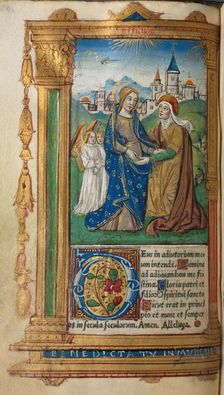 Deus in adiutorium me
um intende. Domine
ad adiuuandum me fe
stina. Gloria patri et
filio et spiritui sancto
Sicut erat in princi
pio et nunc et semper
et in secula seculorum. Amen. Alleluya.
BENEDICTA TV IN